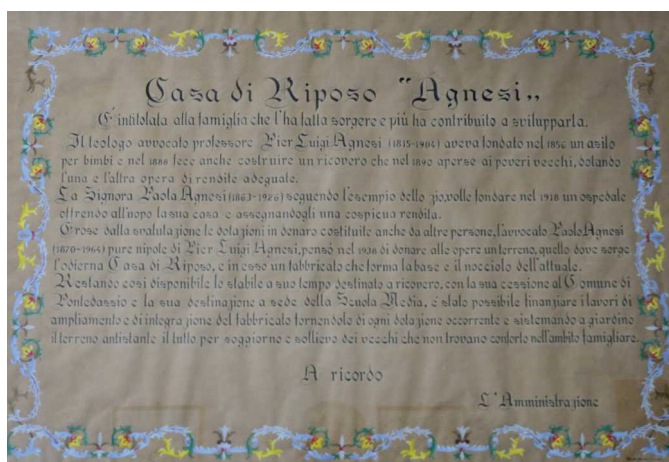 Casa di Riposo "Agnesi„
E' intitolata alla famiglia che l'ha fatta sorgere e più ha contribuito a svilupparla.
Il teologo avvocato professore Pier Luigi Agnesi (1815-1904) aveva fondato nel 1856 un asilo
per bimbi e nel 1888 fece anche costruire un ricovero che nel 1890 aperse ai poveri vecchi, dotando
l'una e l'altra opera di rendite adeguate.
La Signora Paola Agnesi (1863-1926) seguendo l'esempio dello zio, volle fondare nel 1918 un ospedale
offrendo all'uopo la sua casa e assegnandogli una cospicua rendita.
Erose dalla svalutazione le dotazioni in denaro costituite anche da altre persone, l'avvocato Paolo Agnesi
(1870-1964) pure nipote di Pier Luigi Agnesi, pensò nel 1938 di donare alle opere un terreno, quello dove sorge
l'odierna Casa di Riposo, e in esso un fabbricato che forma la base e il nocciolo dell'attuale.
Restando così disponibile lo stabile a suo tempo destinato a ricovero, con la sua cessione al Comune di
Pontedassio e la sua destinazione a sede della Scuola Media, è stato possibile finanziare i lavori di
ampliamento e di integrazione del fabbricato fornendolo di ogni dotazione occorrente e sistemando a giardino
il terreno antistante il tutto per soggiorno e sollievo dei vecchi che non trovano conforto nell'ambito famigliare.
A ricordo
L'Amministrazione